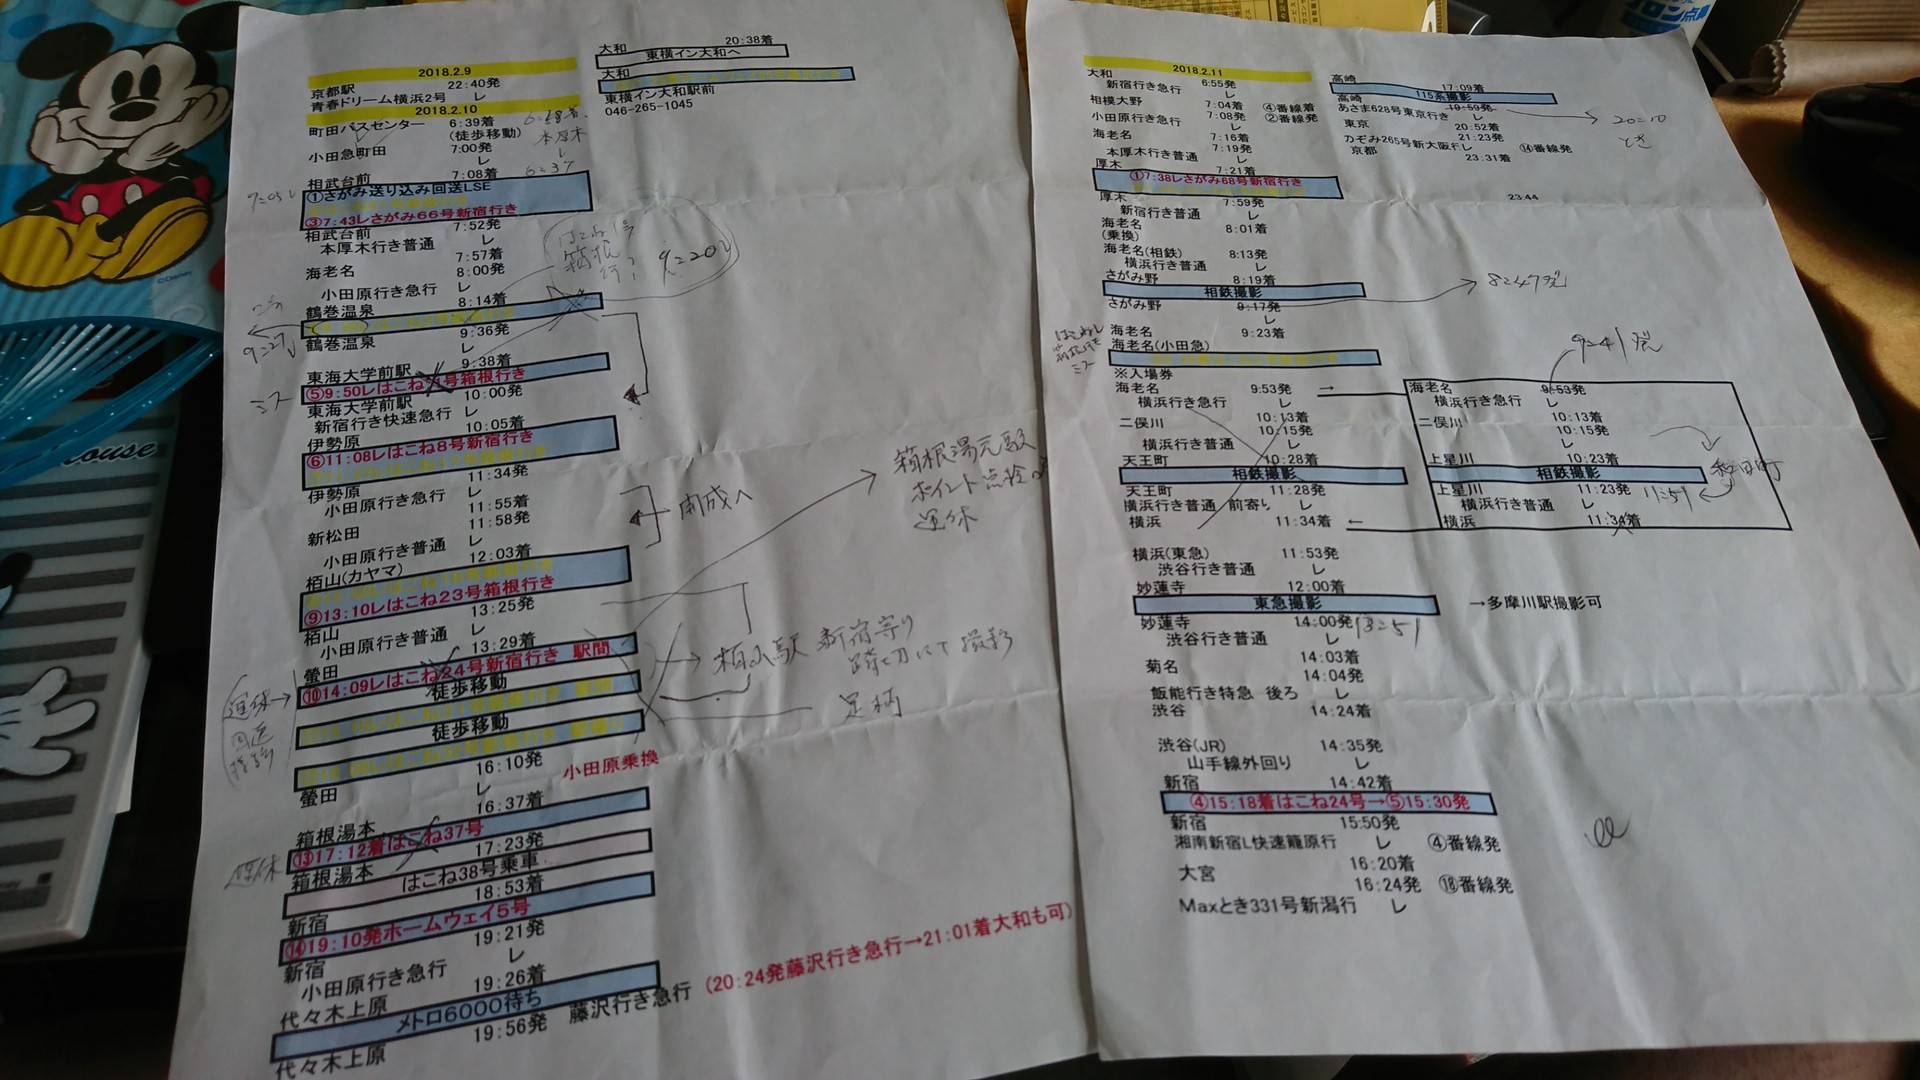 2018.2.9
京都駅 22:40発
青春ドリーム横浜2号 レ
2018.2.10
町田バスセンター 6:39着
(徒歩移動)
小田急町田 7:00発
レ
相武台前 7:08着
①さがみ送り込み回送LSE
③7:43レさがみ66号新宿行き
相武台前 7:52発
本厚木行き普通 レ
7:57着
海老名 8:00発
小田原行き急行 レ
鶴巻温泉 8:14着
鶴巻温泉 9:36発
レ
東海大学前駅 9:38着
⑤9:50レはこね 号箱根行き
東海大学前駅 10:00発
新宿行き快速急行 レ
伊勢原 10:05着
⑥11:08レはこね8号新宿行き
伊勢原 11:34発
小田原行き急行 レ
11:55着
新松田 11:58発
小田原行き普通 レ
栢山(カヤマ) 12:03着
⑨13:10レはこね23号箱根行き
栢山 13:25発
小田原行き普通 レ
螢田 13:29着
⑩14:09レはこね24号新宿行き 駅間
徒歩移動
徒歩移動
螢田 16:10発
小田原乗換
レ
箱根湯本 16:37着
⑬17:12着はこね37号
箱根湯本 17:23発
はこね38号乗車
新宿 18:53着
⑭19:10発ホームウェイ5号
新宿 19:21発
小田原行き急行 レ
代々木上原 19:26着
メトロ6000待ち
代々木上原 19:56発 藤沢行き急行 (20:24発藤沢行き急行→21:01着大和も可)
6:58着
本厚木
レ
6:37
7:05レ
はこね 号
箱根
行
9:20レ
9:27レ
ミス
開成へ
箱根湯元駅
ポイント点検の
運休
栢山駅 新宿寄り
踏切にて撮影
足柄
運休→
回送
運休
大和 20:38着
東横イン大和へ
大和
東横イン大和駅前
046-265-1045
2018.2.11
大和 6:55発
新宿行き急行 レ
相模大野 7:04着 ④番線着
小田原行き急行 7:08発 ②番線発
レ
海老名 7:16着
7:19発
本厚木行き普通 レ
厚木 7:21着
①7:38レさがみ68号新宿行き
厚木 7:59発
新宿行き普通 レ
海老名 8:01着
(乗換)
海老名(相鉄) 8:13発
横浜行き普通 レ
さがみ野 8:19着
相鉄撮影
さがみ野 9:17発
8:47発
海老名 9:23着
海老名(小田急)
※入場券
海老名 9:53発 →
横浜行き急行 レ
10:13着
二俣川 10:15発
横浜行き普通 レ
天王町 10:28着
相鉄撮影
天王町 11:28発
横浜行き普通 前寄り レ
横浜 11:34着 ←
9:41発
海老名 9:53発
横浜行き急行 レ
10:13着
二俣川 10:15発
レ
上星川 10:23着
相鉄撮影
上星川 11:23発
横浜行き普通 レ
横浜 11:34着
和田町
11:51
横浜(東急) 11:53発
渋谷行き普通 レ
妙蓮寺 12:00着
東急撮影 →多摩川駅撮影可
妙蓮寺 14:00発 13:51
渋谷行き普通 レ
14:03着
菊名 14:04発
飯能行き特急 後ろ レ
渋谷 14:24着
渋谷(JR) 14:35発
山手線外回り レ
新宿 14:42着
④15:18着はこね24号→⑤15:30発
新宿 15:50発
湘南新宿L快速籠原行 レ ④番線発
大宮 16:20着
16:24発 ⑱番線発
Maxとき331号新潟行 レ
高崎 17:09着
115系撮影
高崎 19:59発
あさま628号東京行き レ
東京 20:52着
21:23発
のぞみ265号新大阪行 レ ⑭番線発
京都 23:31着
20:10
とき
23:44